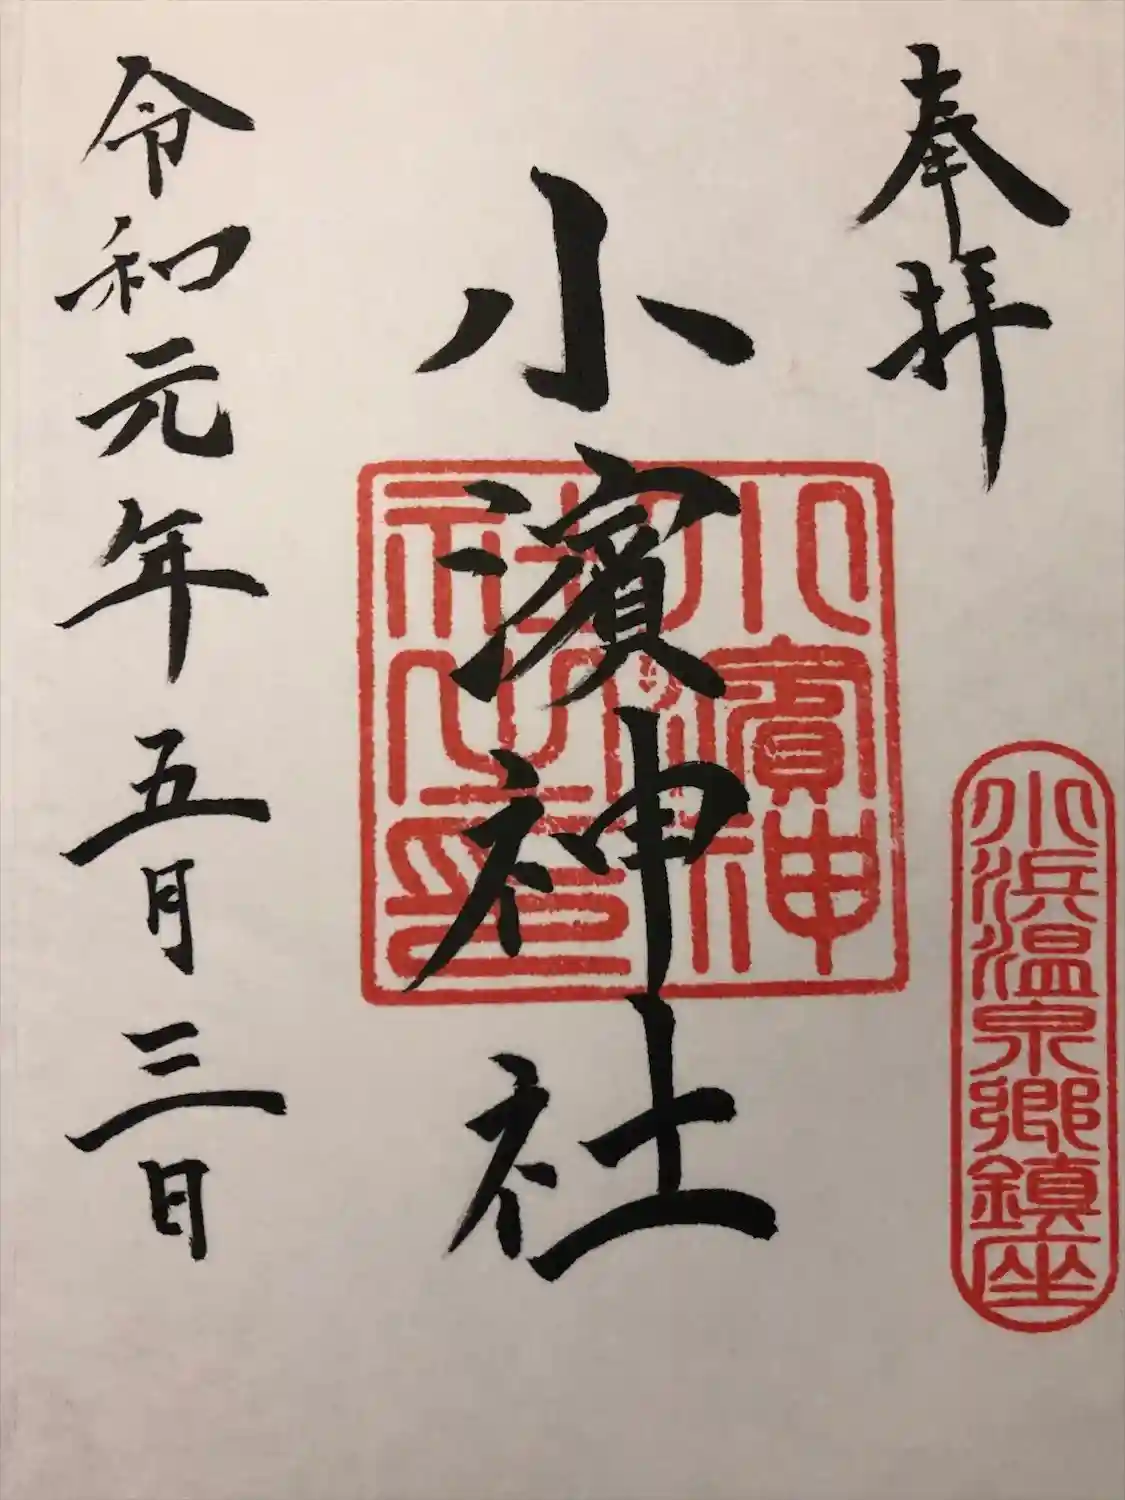 奉拝
小浜温泉郷鎮座
小濱神社
小濱神社之印
令和元年五月三日